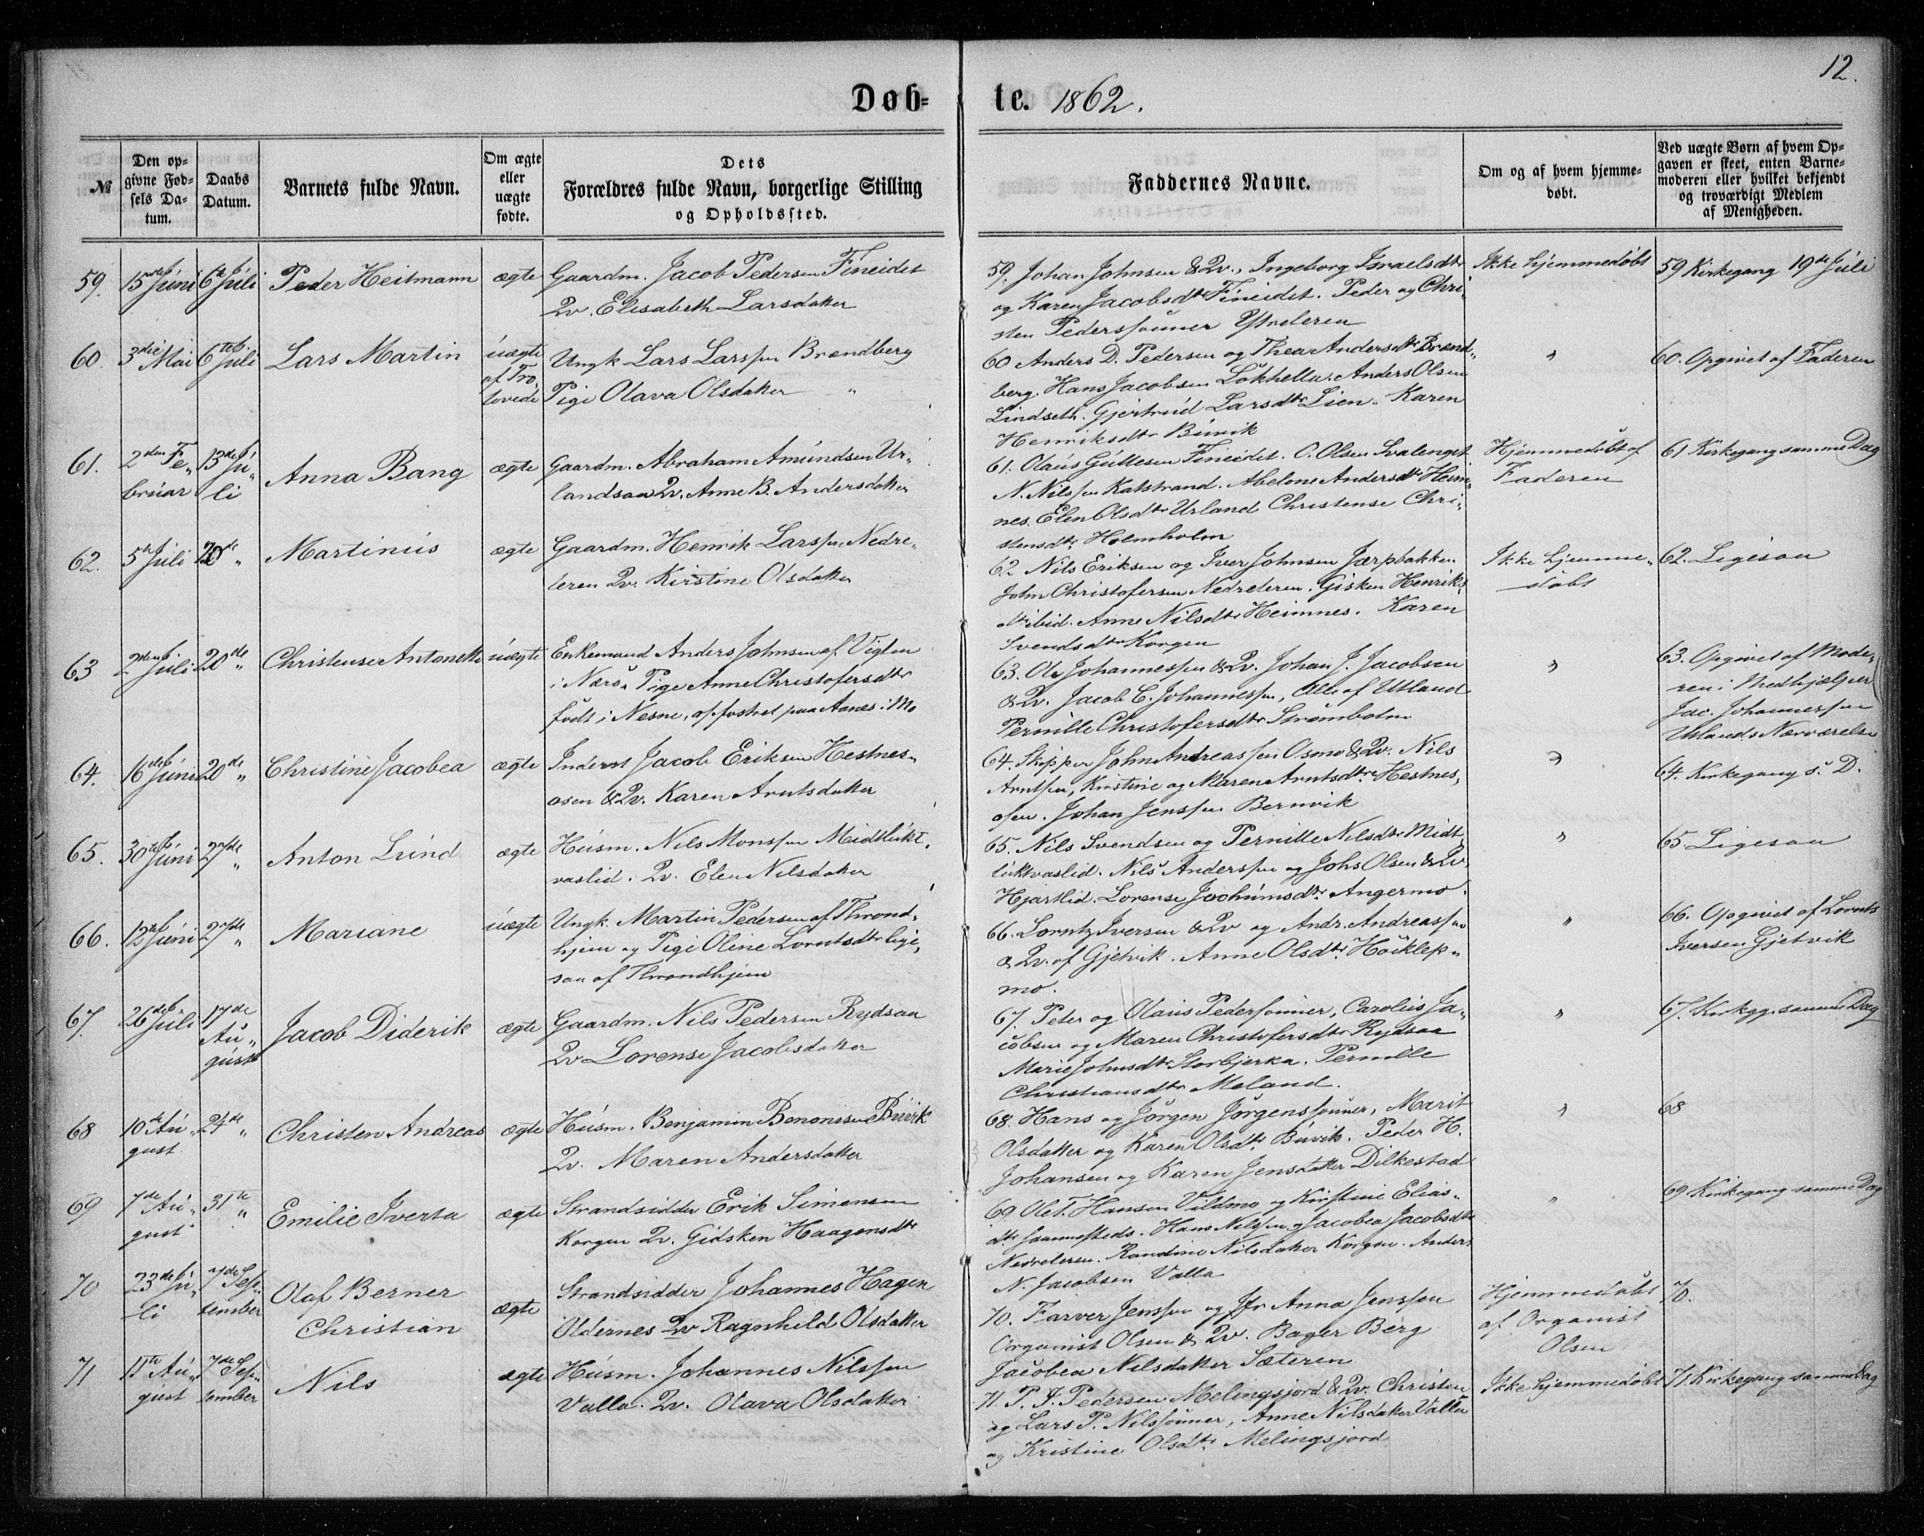 12.
Døb- te. 1862.
№
Den op-
givne Fød-
sels Da-
tum.
Daabs
Datum.
Barnets fulde Navn.
Om ægte
eller
uægte
fødte.
Dets
Forældres fulde Navn, borgerlige Stilling
og Opholdssted.
Faddernes Navne.
Om og af hvem hjemme-
døbt.
Ved uægte Børn af hvem Op-
gaven er skeet, enten Barne-
moderen eller hvilket bekjendt
og troværdigt Medlem
af Menigheden.
59. 15de Júni 6te Júli Peder Heitmann ægte
Gaardm. Jacob Pedersen Fineidet
Qv. Elisabeth Larsdatter
59. Johan Johnsen & Qv., Ingeborg Israelsdtr
og Karen Jacobsdtr Fineidet. Peder og Chri-
sten Pederssønner Ytreleren
Ikke hjemmedøbt
59 Kirkegang 19de Júli
60. 3die Mai 6te Júli Lars Martin úægte
af Tro-
lovede
Ungk. Lars Larssen Brændberg
Pige Olava Olsdatter "
60 Anders D. Pedersen og Thea Andersdtr Brænd-
berg. Hans Jacobsen Løkhella. Anders Olsen
Lindseth. Gjertrúd Larsdtr Lien. Karen
Henriksdtr Búvik
"
60. Opgivet af Faderen
61. 2den Fe-
brúar
13de Jú-
li
Anna Bang ægte
Gaardm. Abraham Amúndsen Ur-
landsaa Qv. Anne B. Andersdatter
61. Olaús Gúttesen Fineidet. O. Olsen Svalenget
N. Nilssen Katstrand. Abelone Andersdtr Heim-
nes. Elen Olsdtr Urland Christense Chri-
stensdtr Holmholm
Hjemmedøbt af
Faderen
61 Kirkegang samme Dag
62. 5te Júli 20de " Martinús ægte
Gaardm. Henrik Larssen Nedre-
leren Qv. Kirstine Olsdatter
62 Nils Eriksen og Iver Johnsen Jærpbakken
John Christofersen Nedreleren. Gisken Henriks-
dtr ibid. Anne Nilsdtr Heimnes. Karen
Svendsdtr Korgen
Ikke hjemme-
døbt
62. Ligesaa
63 2den Júli 20de " Christense Antonette úægte
Enkemand Anders Johnsen af Vigten
i Nærø. Pige Anne Christofersdtr
født i Nesne, opfostret paa Aanes i Mo
63. Ole Johannessen & Qv. Johan J. Jacobsen
& Qv. Jacob C. Johannessen, Alle af Utland
Pernille Christofersdtr Strømbotn
"
63. Opgivet af Mode-
ren i Medhjælper
Jac. Johannessen
Utlands Nærværelse
64. 16de Júni 20de " Christine Jacobea ægte
Inderst Jacob Eriksen Hestnes-
osen & Qv. Karen Arntsdatter
64. Skipper John Andreassen Osmo & Qv. Nils
Arntsen, Kirstine og Maren Arntsdtr Hestnes-
osen. Johan Jenssen Bernvik
"
64. Kirkegang s. D.
65. 30te Júni 27de " Anton Lúnd ægte
Húsm. Nils Monssen Meidtlúkt-
vaslid. Qv. Elen Nilsdatter
65. Nils Svendsen og Pernille Nilsdtr Midt
lúktvaslid. Nils Anderssen og Johs Olsen & Qv.
Hjartlid. Lorense Jochúmsdtr Angermo.
"
65 Ligesaa
66. 12te Júni 27de " Mariane úægte
Ungk. Martin Pedersen af Thrond-
hjem og Pige Oline Lorntsdtr lige-
saa af Throndhjem
66. Lorntz Iversen & Qv og Andr. Andreassen
& Qv. af Gjetvik. Anne Olsdtr Høiklep-
mo.
"
66. Opgivet af Lornts
Iversen Gjetvik
67. 26de Júli 17de
Aú-
gúst
Jacob Diderik ægte
Gaardm. Nils Pedersen Rydsaa
Qv Lorense Jacobsdatter
67. Peter og Olaús Pederssønner, Carolius Ja-
cobsen og Maren Christofersdtr Rydsaa
Marie Johnsdtr Storbjerka. Pernille
Christiansdtr Moland.
"
67. Kirkgg. samme Dag
68 10de Aú-
gust
24de " Christen Andreas ægte
Húsm. Benjamin Benonisen Búvik
Qv. Maren Andersdatter
68. Hans og Jørgen Jørgenssønner, Marit
Olsdatter og Karen Olsdtr Búvik. Peder H.
Johansen og Karen Jensdatter Dilkestad
"
68
69 7de Aú-
gust
31te " Emilie Iverta ægte
Strandsidder Erik Simensen
Korgen Qv. Gidsken Haagensdtr
69 Ole T. Hansen Vildmo og Kirstine Elias-
dtr sammesteds. Hans Nilssen og Jacobea Jacobsdtr
Nedreleren. Randine Nilsdatter Korgen. Anders
N. Jacobsen Valla
"
69 Kirkegang samme Dag
70 23de Jú-
li
7de Sep-
tember
Olaf Berner
Christian
ægte
Strandsidder Johannes Hagen
Oldernes Qv Ragnhild Olsdatter
70. Farver Jenssen og Jfr Anna Jenssen
Organist Olsen & Qv. Bager Berg
Jacobea Nilsdatter Sæteren
Hjemmedøbt
af Organist
Olsen
70.
71 11te Aú-
gust
7de Sep-
tember
Nils ægte
Húsm. Johannes Nilssen
Valla. Qv. Olava Olsdatter
71. P. J. Pedersen Melingsjord & Qv. Christen
og Lars P. Nilssønner, Anne Nilsdatter Valla
og Kristine Olsdtr Melingsjord
Ikke hjemmedøbt
71. Kirkegang samme Dag